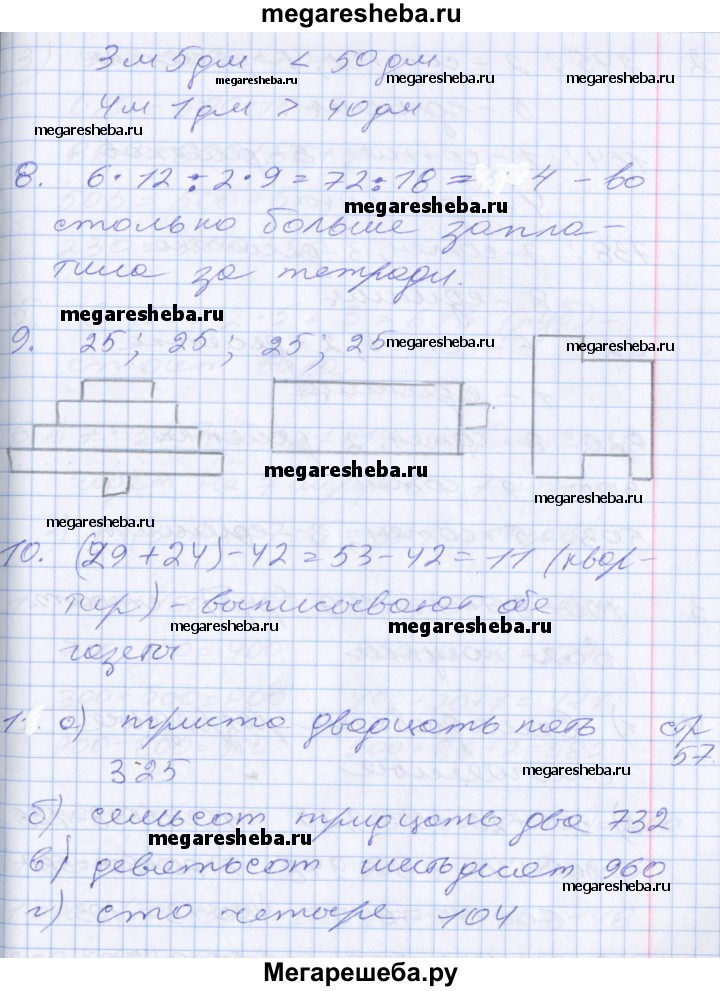 megaresheba.ru
3 м 5 дм < 50 дм
megaresheba.ru megaresheba.ru megaresheba.ru
4 м 1 дм > 40 дм
megaresheba.ru
8. 6 · 12 : 2 · 9 = 72 : 18 = 4 - во
megaresheba.ru
столько больше запла-
тила за тетради.
megaresheba.ru
9. 25; 25; 25; 25
megaresheba.ru megaresheba.ru
megaresheba.ru
megaresheba.ru
megaresheba.ru
10. (29 + 24) - 42 = 53 - 42 = 11 (квар-
тир) - выписывают обе
megaresheba.ru megaresheba.ru
газеты
1. а) триста двадцать пять стр
57.
325
megaresheba.ru
б) семьсот тридцать два 732
megaresheba.ru
в) девятьсот шестьдесят 960
megaresheba.ru
г) сто четыре 104
Мегарешеба.ру